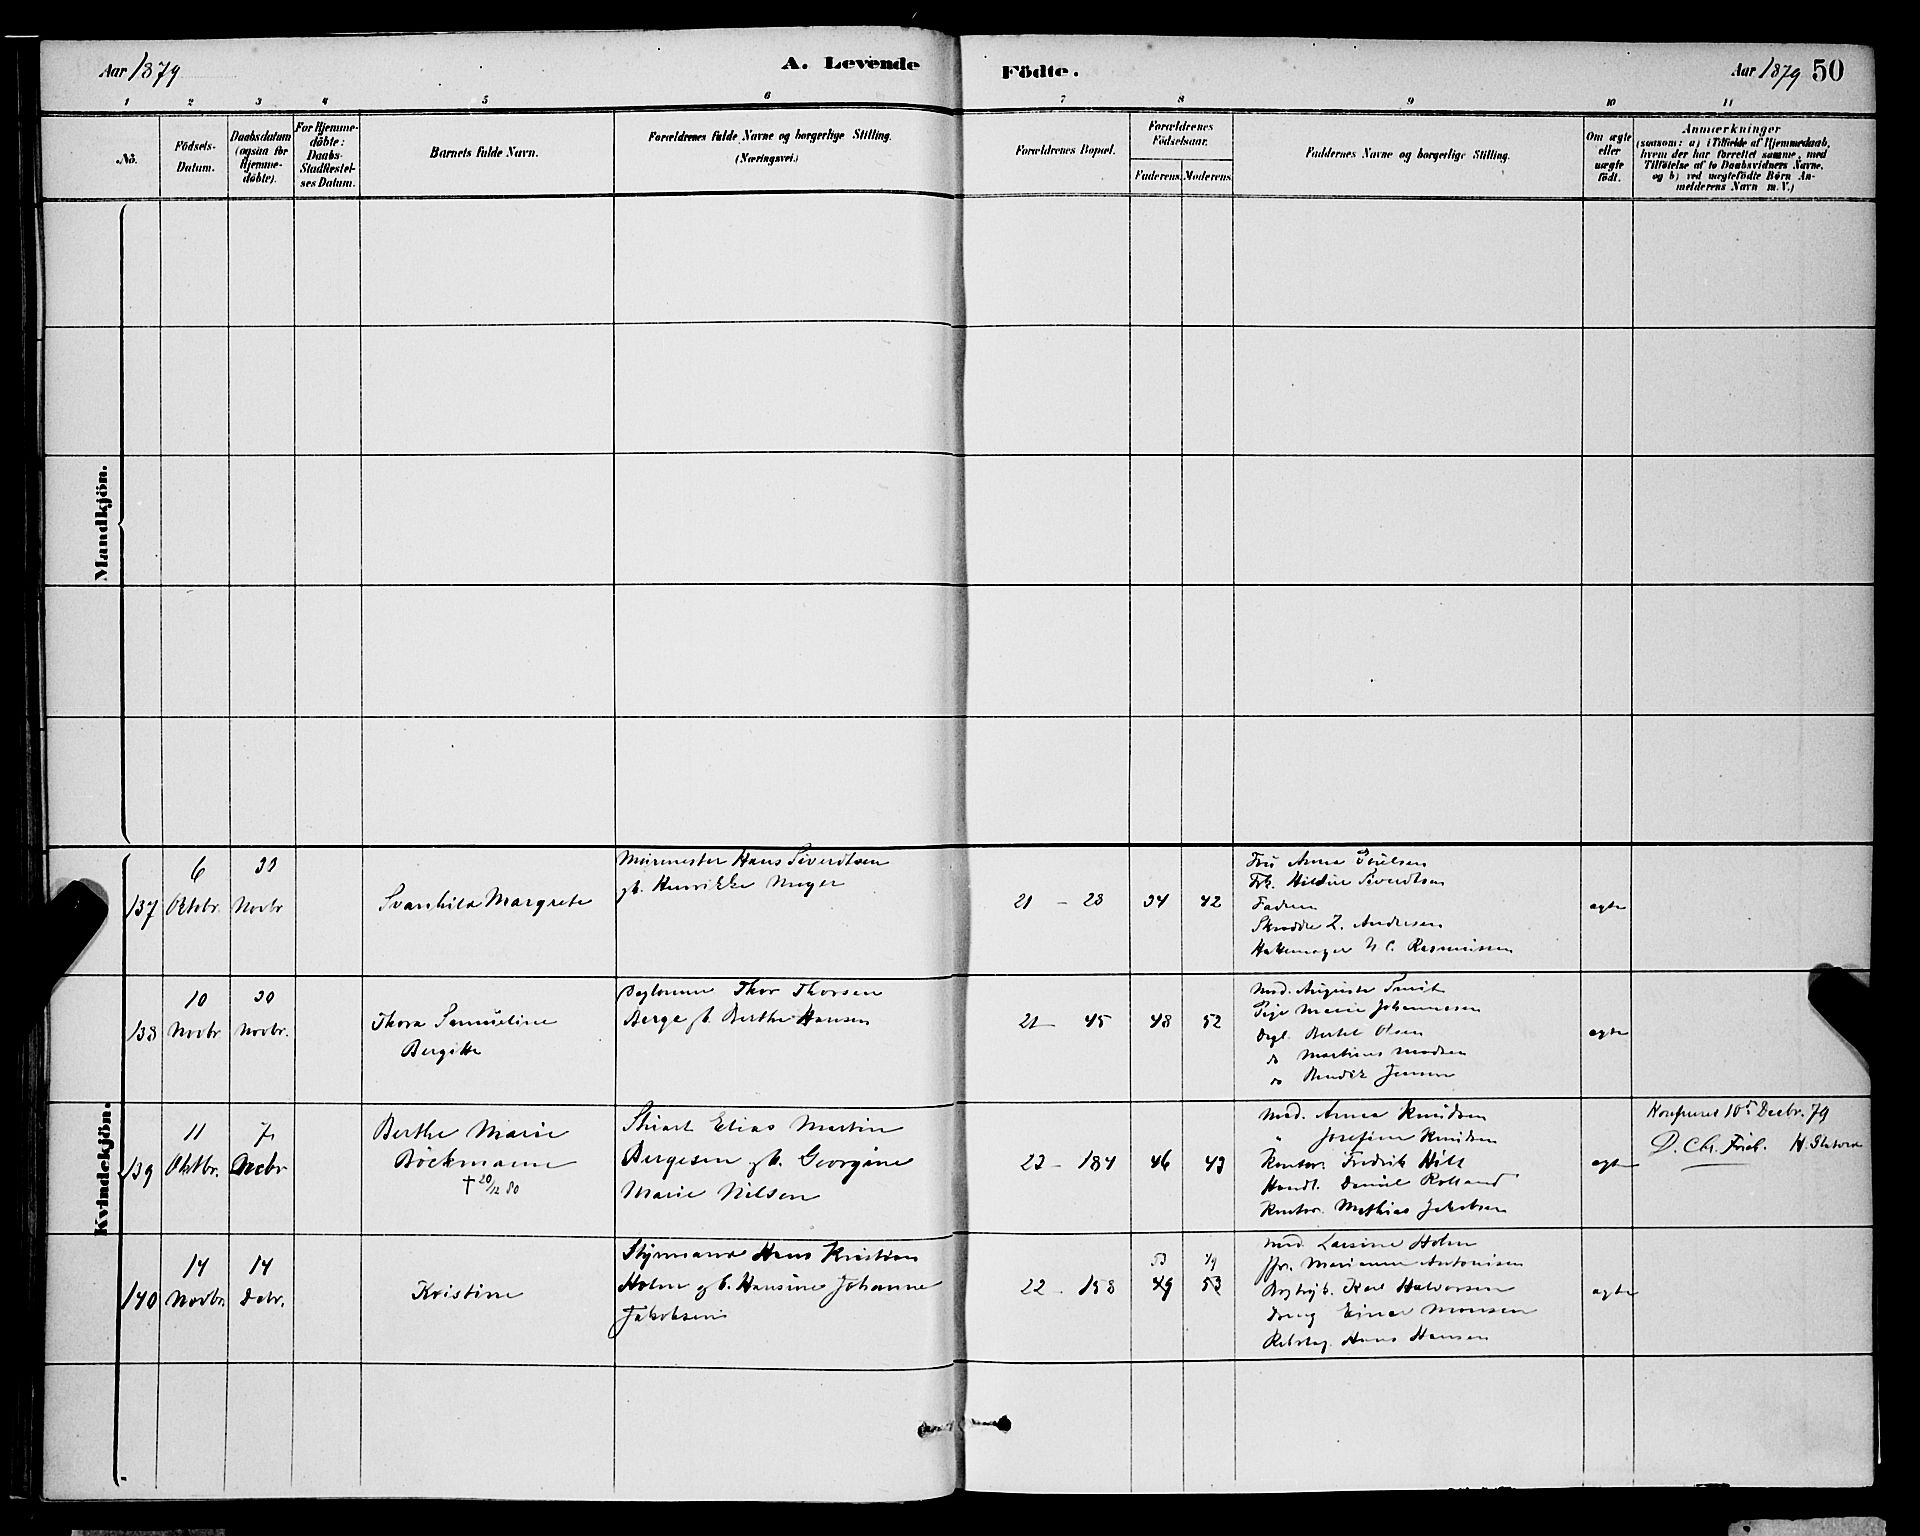 Aar 1879
A. Levende
Födte.
Aar 1879 50
1 2 3 4 5 6 7 8 9 10 11
No.
Födsels-
Datum.
Daabsdatum
(ogsaa for
Hjemme-
döbte).
For Hjemme-
döbte:
Daabs-
Stadfestel-
ses Datum.
Barnets fulde Navn.
Forældrenes fulde Navne og borgerlige Stilling.
(Næringsvei.)
Forældrenes Bopæl.
Forældrenes
Födselsaar.
Faderens. Moderens.
Faddernes Navne og borgerlige Stilling.
Om ægte
eller
uægte
födt.
Anmærkninger
(saasom: a) i Tilfælde af Hjemmedaab,
hvem der har forrettet samme, med
Tilföielse af to Daabsvidners Navne,
og b) ved uægtefödte Börn An-
melderens Navn m. V.)
Mandkjön.
Kvindekjön.
137
6
Oktbr.
30
Novbr
Svanhild Margrete
Murmester Hans Siverdtsen
gb. Henrikke Meyer
21 - 28
34
42
Fru Anna
Frk. Hilda Siverdtsen
Fadren
Skrædder Z. Andresen
Hattemager N C. Rasmussen
ægte
138
10
Novbr
30
Novbr.
Thora Samueline
Bergitte
Thor Thorsen
Berge gb. Berthe Hansen
21 - 45
48
52
Mad. Auguste
Pige Marie Johannessen
Dagl. Bertel Olsen
do Martinus Madsen
do Bendik Jensen
ægte
139
11
Oktbr.
7
Decbr
Berthe Marie
Böckmann
† 20/12 80
Stuart Elias Martin
Bergesen gb. Georgine
Marie Nilsen
23 - 184
46
43
Mad. Anna Knudsen
" Josefine Knudsen
Kontor. Fredrik Hill
Handl. Daniel Rolland
Kontor. Mathias Jakobsen
ægte
Konfereret 10de Decbr. 79
D. Chr.
140
14
Novbr.
14
Decbr.
Kristine
Styrmand Hans Kristian
Holm gb. Hansine Johanne
Jakobsen
22 - 158
53
49
49
53
Mad. Larsine Holm
Marianne Antonisen
Karl Halvorsen
Einar Monsen
Hans Hansen
ægte